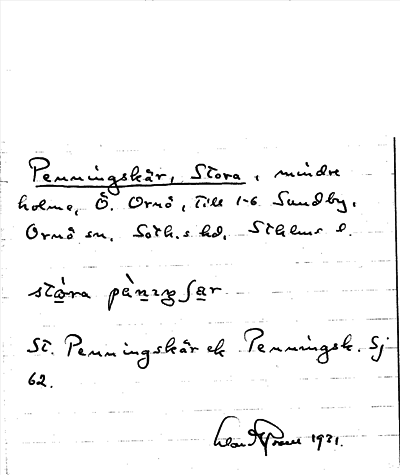 Penningskär, Stora, mindre
holme, Ö. Ornö, till 1-6 Sundby,
Ornö sn, Soth.s hd, Sthlms l.
stóra pèniŋʃar
St. Penningskär ek Penningsk. Sj
62.
1921.